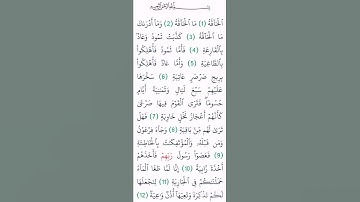 بسم الله الرحمن الرحيم
ٱلْحَآقَّةُ (1) مَا ٱلْحَآقَّةُ (2) وَمَآ أَدْرَىٰكَ
مَا ٱلْحَآقَّةُ (3) كَذَّبَتْ ثَمُودُ وَعَادٌۢ
بِٱلْقَارِعَةِ (4) فَأَمَّا ثَمُودُ فَأُهْلِكُوا۟
بِٱلطَّاغِيَةِ (5) وَأَمَّا عَادٌ فَأُهْلِكُوا۟
بِرِيحٍ صَرْصَرٍ عَاتِيَةٍ (6) سَخَّرَهَا
عَلَيْهِمْ سَبْعَ لَيَالٍ وَثَمَٰنِيَةَ أَيَّامٍ
حُسُومًا فَتَرَى ٱلْقَوْمَ فِيهَا صَرْعَىٰ
كَأَنَّهُمْ أَعْجَازُ نَخْلٍ خَاوِيَةٍ (7) فَهَلْ
تَرَىٰ لَهُم مِّنۢ بَاقِيَةٍ (8) وَجَآءَ فِرْعَوْنُ
وَمَن قَبْلَهُۥ وَٱلْمُؤْتَفِكَٰتُ بِٱلْخَاطِئَةِ
(9) فَعَصَوْا۟ رَسُولَ رَبِّهِمْ فَأَخَذَهُمْ
أَخْذَةً رَّابِيَةً (10) إِنَّا لَمَّا طَغَا ٱلْمَآءُ
حَمَلْنَٰكُمْ فِى ٱلْجَارِيَةِ (11) لِنَجْعَلَهَا
لَكُمْ تَذْكِرَةً وَتَعِيَهَآ أُذُنٌ وَٰعِيَةٌ (12)